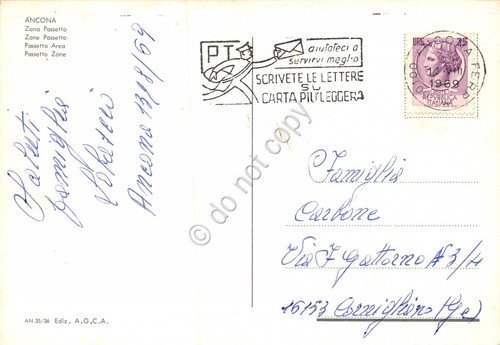 ANCONA
Zona Passetto
Zone Passetto
Passetto Area
Passetto Zone
Saluti
Famiglia
Ancona 13/8/69
AN 35/36 Ediz. A.G.C.A.
PT
aiutateci a
servirvi meglio
SCRIVETE LE LETTERE
SU
CARTA PIU' LEGGERA
ANCONA FERR.
1969
LIRE 25
REPUBBLICA
ITALIANA
Famiglia
Carbone
Via F Gattorno N 3/4
16153 Cornigliano (Ge)
do not copy